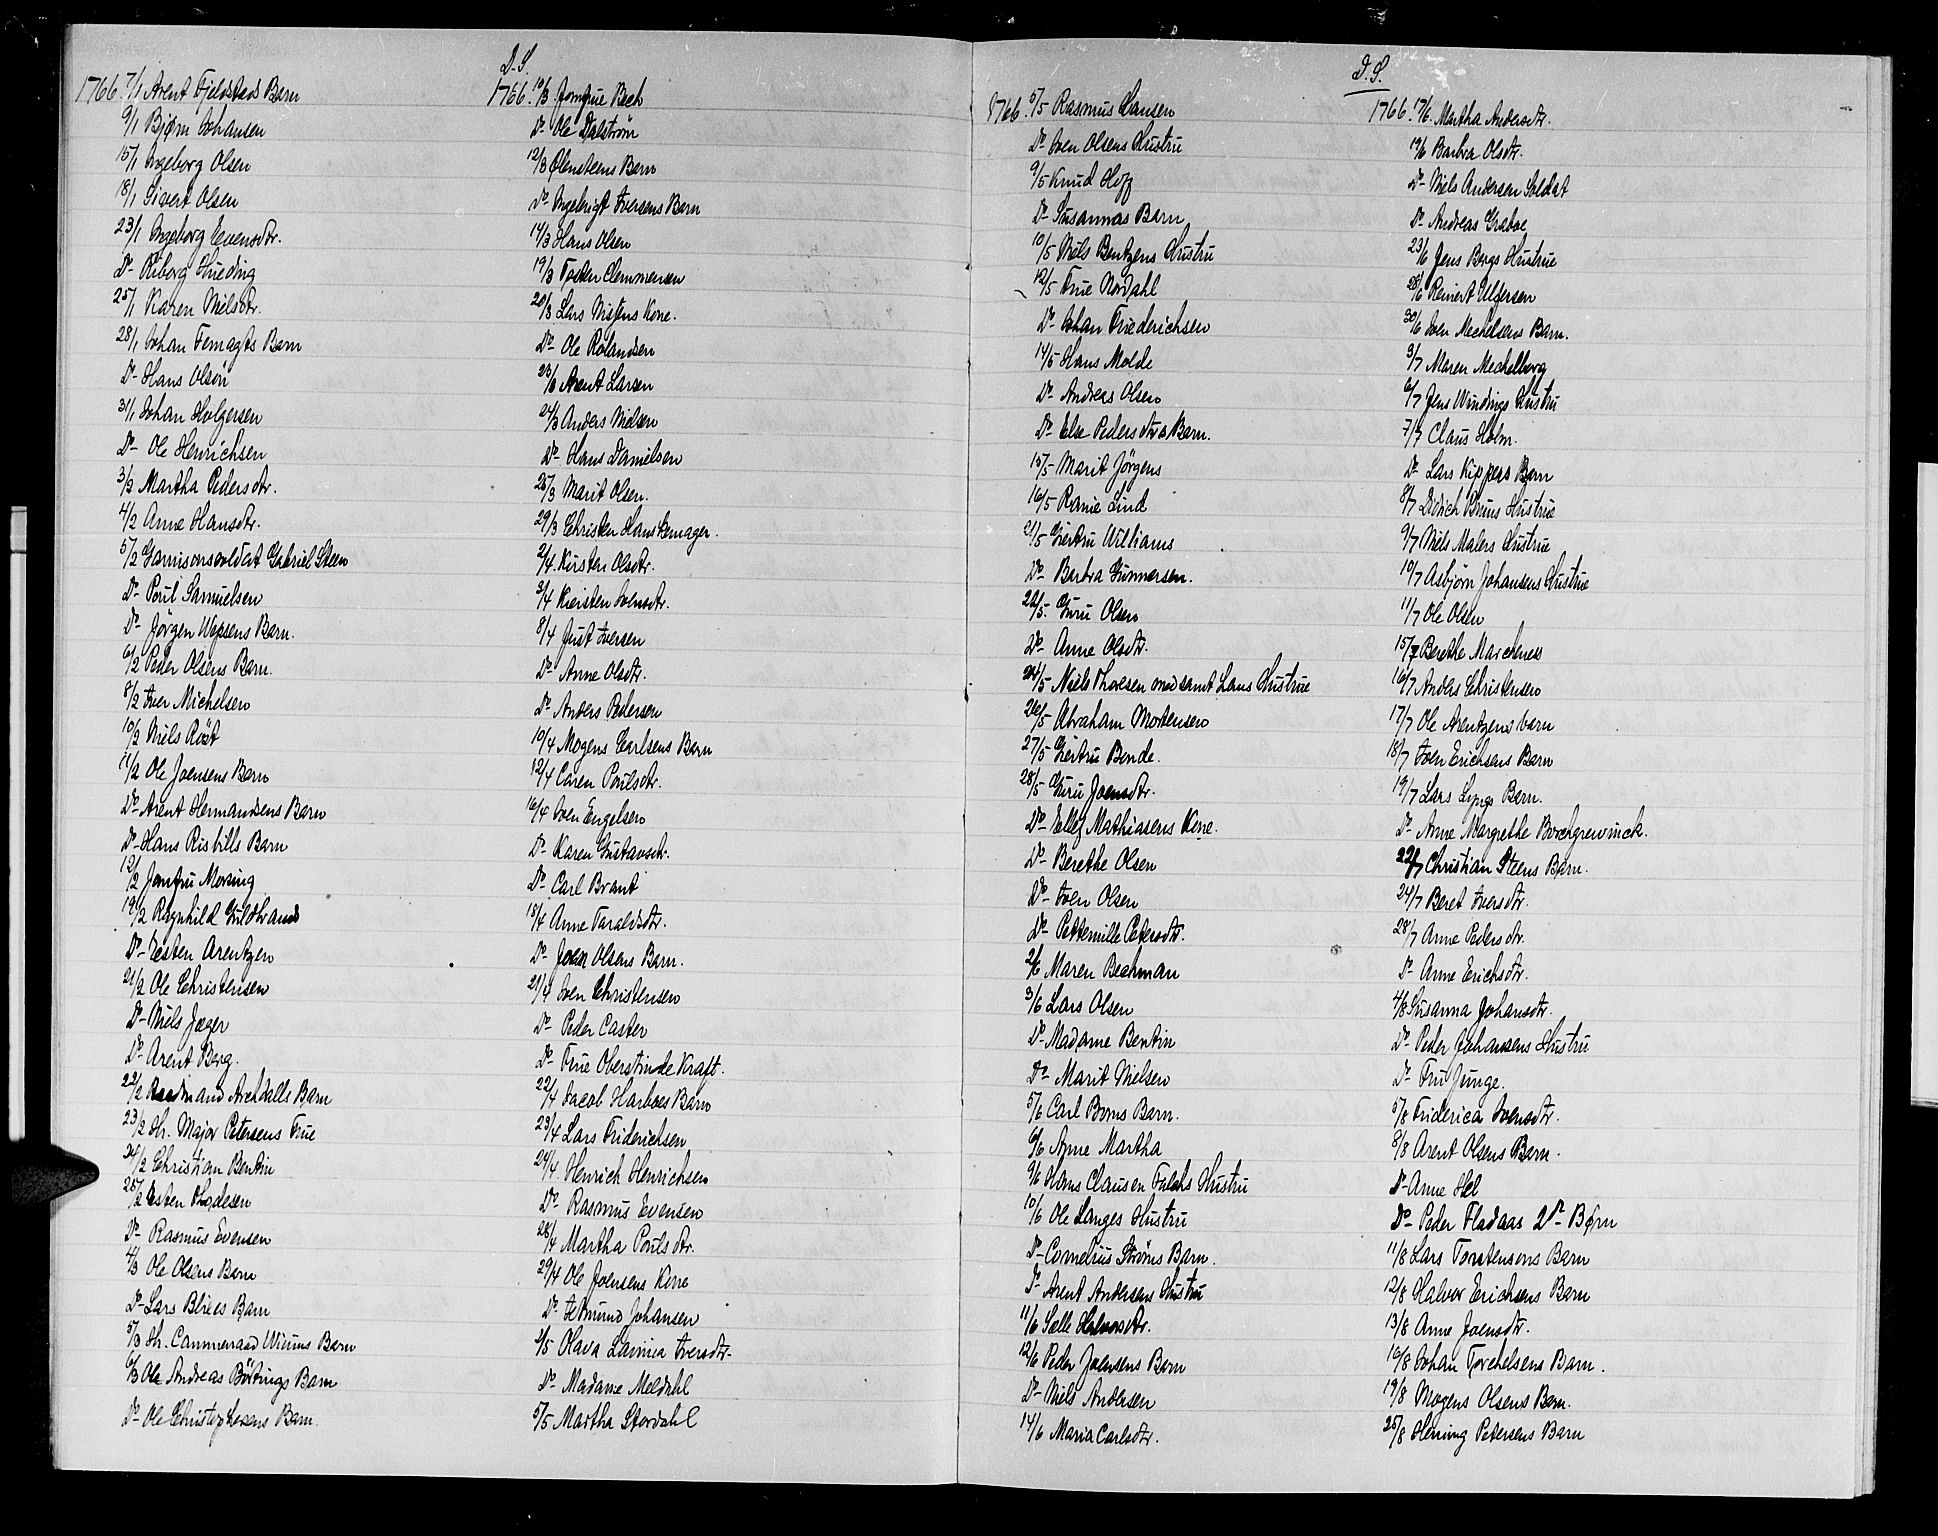 D.S.
1766. 7/1 Arent Fjeldstads Barn
9/1 Bjørn Johansen
15/1 Ingeborg Olsen
18/1 Sivert Olsen
23/1 Ingeborg Evensdtr.
Do Riborg Hueding
25/1 Karen Nielsdtr.
28/1 Johan Femagts Barn
Do Hans Olsön
31/1 Johan Holgersen
Do Ole Henrichsen
3/2 Martha Pedersdtr.
4/2 Anne Hansdtr.
5/2 Garnisonssoldat Gabriel Steen
Do Poul Samuelsen
Do Jörgen Wepsens Barn.
6/2 Peder Olsens Barn.
8/2 Iver Michelsen
10/2 Niels Röst
11/2 Ole Joensens Barn
Do Arent Hermandsens Barn
Do Hans Risbills Barn
12/2 Jomfru Morsing
19/2 Ragnhild Guldbrands
Do Esten Arentzen
21/2 Ole Christensen
Do Niels Jæger
Do Arent Berg.
22/2 Randmand Arehdalls Barn
23/2 Hr. Major Petersens Frue
24/2 Christian Bentin
25/2 Esten Thodesen
Do Rasmus Evensen
4/3 Ole Olsens Barn
Do Lars Blixes Barn
5/3 Hr. Cammeraad Wiums Barn
6/3 Ole Andreas Börtings Barn
Do Ole Christophersens Barn.
1766. 10/3 Jomfrue Bech
Do Ole Dalström
12/3 Ølensteens Barn
Do Ingebrigt Iversens Barn
14/3 Hans Olsen
19/3 Torsten Clemmensen
20/3 Lars Nisens Kone.
Do Ole Rolandsen
23/3 Arent Larsen
24/3 Anders Nielsen
Do Hans Danielsen
25/3 Marit Olsen.
29/3 Christen Hanskemager.
2/4 Kirsten Olsdtr.
3/4 Kiersten Iversdtr.
8/4 Just Iversen
Do Anne Olsdtr.
Do Anders Pedersen
10/4 Mogens Carlsens Barn
12/4 Caren Poulsdtr.
16/4 Iven Engelsen
Do Karen Gustavsdtr.
Do Carl Brant
18/4 Anne Taraldsdtr.
Do Joen Olsens Barn.
21/4 Iven Christensen
Do Peder Caster
Do Frue Oberstinde Kraft.
22/4 Jacob Harboes Barn
23/4 Lars Friderichsen
24/4. Henrich Henrichsen
Do Rasmus Evensen
28/4 Martha Poulsdtr.
29/4 Ole Joensens Kone
Do Edmund Johansen
2/5 Olava Lavinia Iversdtr.
Do Madame Meldahl
5/5 Martha Stordahl
D.S.
1766. 5/5 Rasmus Hansen
Do Iven Olsens Hustru
9/5 Knud Hoff
Do Susannas Barn
10/5 Niels Bentzens Hustru
12/5 Frue Nordahl
Do Johan Friederichsen
14/5 Hans Molde
Do Andreas Olsen
Do Else Pedersdtrs Barn.
15/5 Marit Jörgens
16/5 Ranie Lind
21/5 Giertru Williams
Do Barbra Gunnersen.
22/5. Guru Olsen
Do Anne Olsdtr.
24/5 Niels Thoresen med samt Hans Hustrue
26/5 Abraham Mortensen
27/5 Giertru Bonde.
28/5 Guru Joensdtr.
Do Ellef Mathiasens Kone.
Do Berethe Olsen
Do Iven Olsen
Do Pettemille Petersdtr.
2/6 Maren Bechman
3/6 Lars Olsen
Do Madame Bentin
Do Marit Nielsen
5/6 Carl Boms Barn.
6/6 Anne Martha
9/6 Hans Clausen Falchs Hustru
10/6 Ole Langes Hustru
Do Cornelius Ströms Barn.
Do Arent Andersens Hustru
11/6 Sælle Halvorsdtr.
12/6 Peder Joensens Barn
Do Niels Andersen
14/6 Maria Carlsdtr.
1766. 17/6. Martha Andersdtr.
19/6 Barbra Olsdtr.
Do Niels Andersen Soldat
Do Andreas Graboe
23/6 Jens Bergs Hustrue
28/6 Reinert Ulfersen
30/6 Iven Mechelsens Barn.
3/7 Maren Mechelborg
6/7 Jens Windings Hustru
7/7 Claus Holm.
Do Lars Kippers Barn
8/7 Didrich Bruns Hustrue
9/7 Niels Malers Hustrue
10/7 Asbjörn Johansens Hustrue
11/7 Ole Olsen
15/7 Berethe Marchenes
16/7 Anders Christensen
17/7 Ole Arentzens barn
18/7 Iven Erichsens Barn
19/7 Lars Lyngs Barn.
Do Anne Margrethe Borchgrewinck.
22/7 Christian Steens Barn.
24/7 Beret Iversdtr.
28/7 Anne Pedersdtr.
Do Anne Erichsdtr.
4/8 Susanna Johansdtr.
Do Peder Johansens Hustru
Do Fru Junge.
5/8 Friderica Ivensdtr.
8/8 Arent Olsens Barn.
Do Anne Hel
Do Peder Fladaas 2de Børn
11/8 Lars Torstensens Barn
12/8 Halvor Erichsens Barn
13/8 Anne Joensdtr.
16/8 Johan Torchelsens Barn.
19/8 Mogens Olsens Barn.
25/8 Henning Petersens Barn